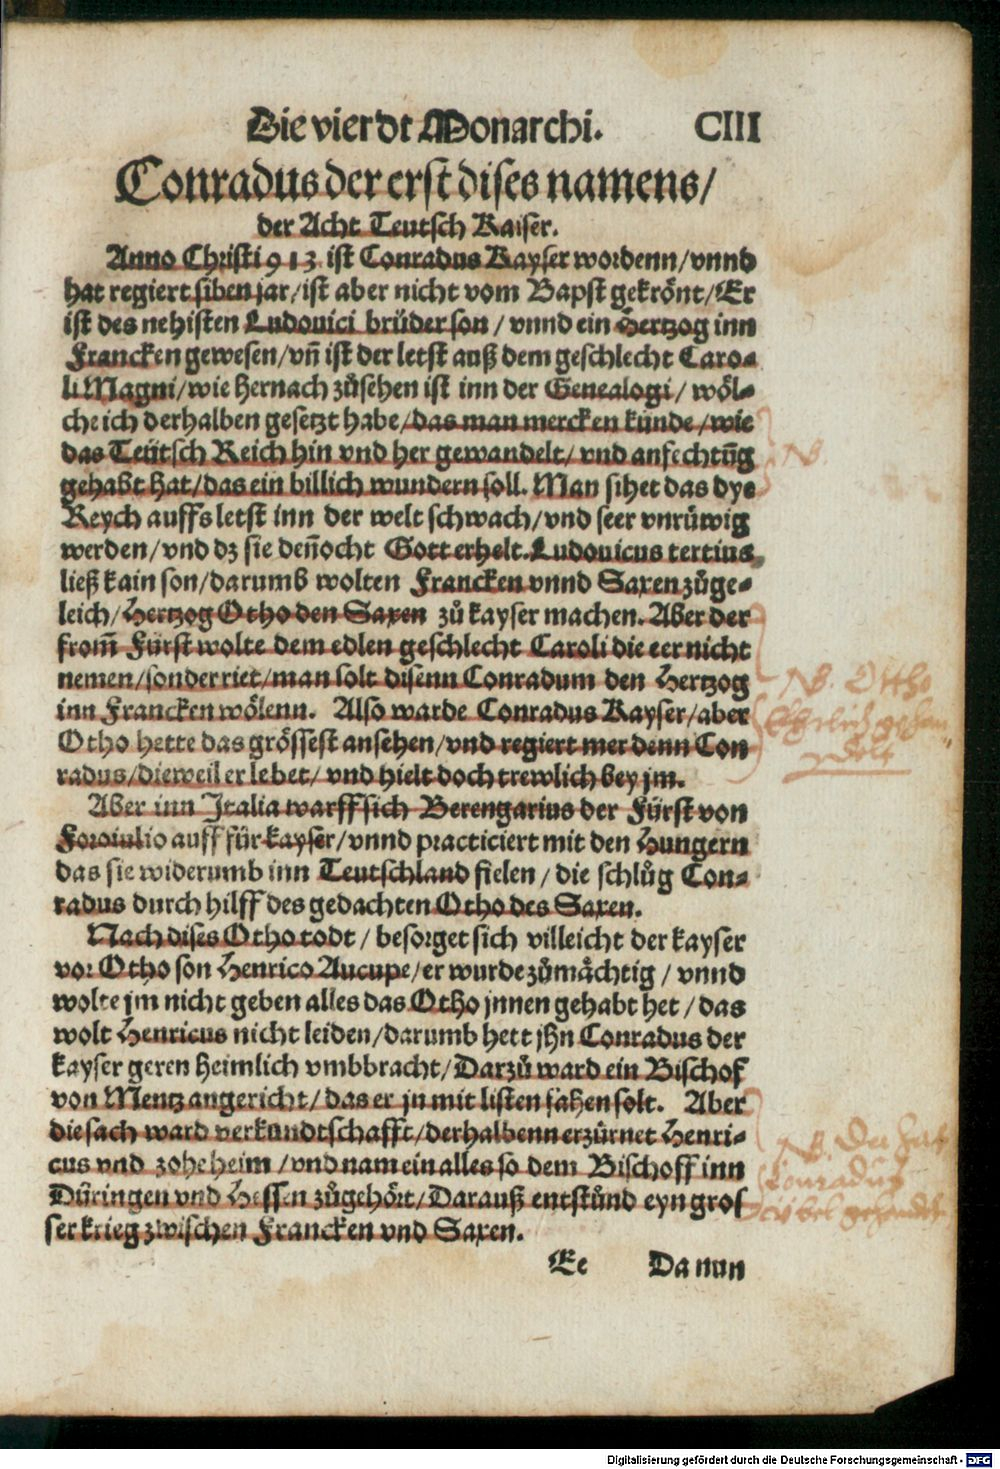 Die vierdt Monarchi. CIII
Conradus der erst dises namens/
der Acht Teutsch Kaiser.
Anno Christi 913 ist Conradus Kayser wordenn/vnnd
hat regiert siben jar/ist aber nicht vom Bapst gekrönt/Er
ist des nehisten Ludouici brüder son/vnnd ein Hertzog inn
Francken gewesen/vñ ist der letst auß dem geschlecht Caro-
li Magni/wie hernach zůsehen ist inn der Genealogi/wöl-
che ich derhalben gesetzt habe/das man mercken künde/wie
das Teütsch Reich hin vnd her gewandelt/vnd anfechtũg
gehabt hat/das ein billich wundern soll. Man sihet das dye
Reych auffs letst inn der welt schwach/vnd seer vnrüwig
werden/vnd dz sie deñocht Gott erhelt. Ludouicus tertius
ließ kain son/darumb wolten Francken vnnd Saxen zůge-
leich/Hertzog Otho den Saxen zů kayser machen. Aber der
from̃ Fürst wolte dem edlen geschlecht Caroli die eer nicht
nemen/sonder riet/man solt disenn Conradum den Hertzog
inn Francken wölenn. Also warde Conradus Kayser/aber
Otho hette das grössest ansehen/vnd regiert mer denn Con
radus/dieweil er lebet/vnd hielt doch trewlich bey jm.
Aber inn Italia warff sich Berengarius der Fürst von
Foroiulio auff für kayser/vnnd practiciert mit den Hungern
das sie widerumb inn Teutschland fielen/die schlůg Con-
radus durch hilff des gedachten Otho des Saxen.
Nach dises Otho todt/besorget sich villeicht der kayser
vor Otho son Henrico Aucupe/er wurde zůmächtig/vnnd
wolte jm nicht geben alles das Otho jnnen gehabt het/das
wolt Henricus nicht leiden/darumb hett jhn Conradus der
kayser geren heimlich vmbbracht/Darzů ward ein Bischof
von Mentz angericht/das er jn mit listen fahen solt. Aber
die sach ward verkundtschafft/derhalbenn erzürnet Henri-
cus vnd zohe heim/vnd nam ein alles so dem Bischoff inn
Düringen vnd Hessen zůgehört/Darauß entstůnd eyn gros
ser krieg zwischen Francken vnd Saxen.
Ee Da nun
NB.
NB. Ottho
Ehrlich gehan
delt
NB. Da hat
Conradus
übel gehandelt
Digitalisierung gefördert durch die Deutsche Forschungsgemeinschaft - DFG